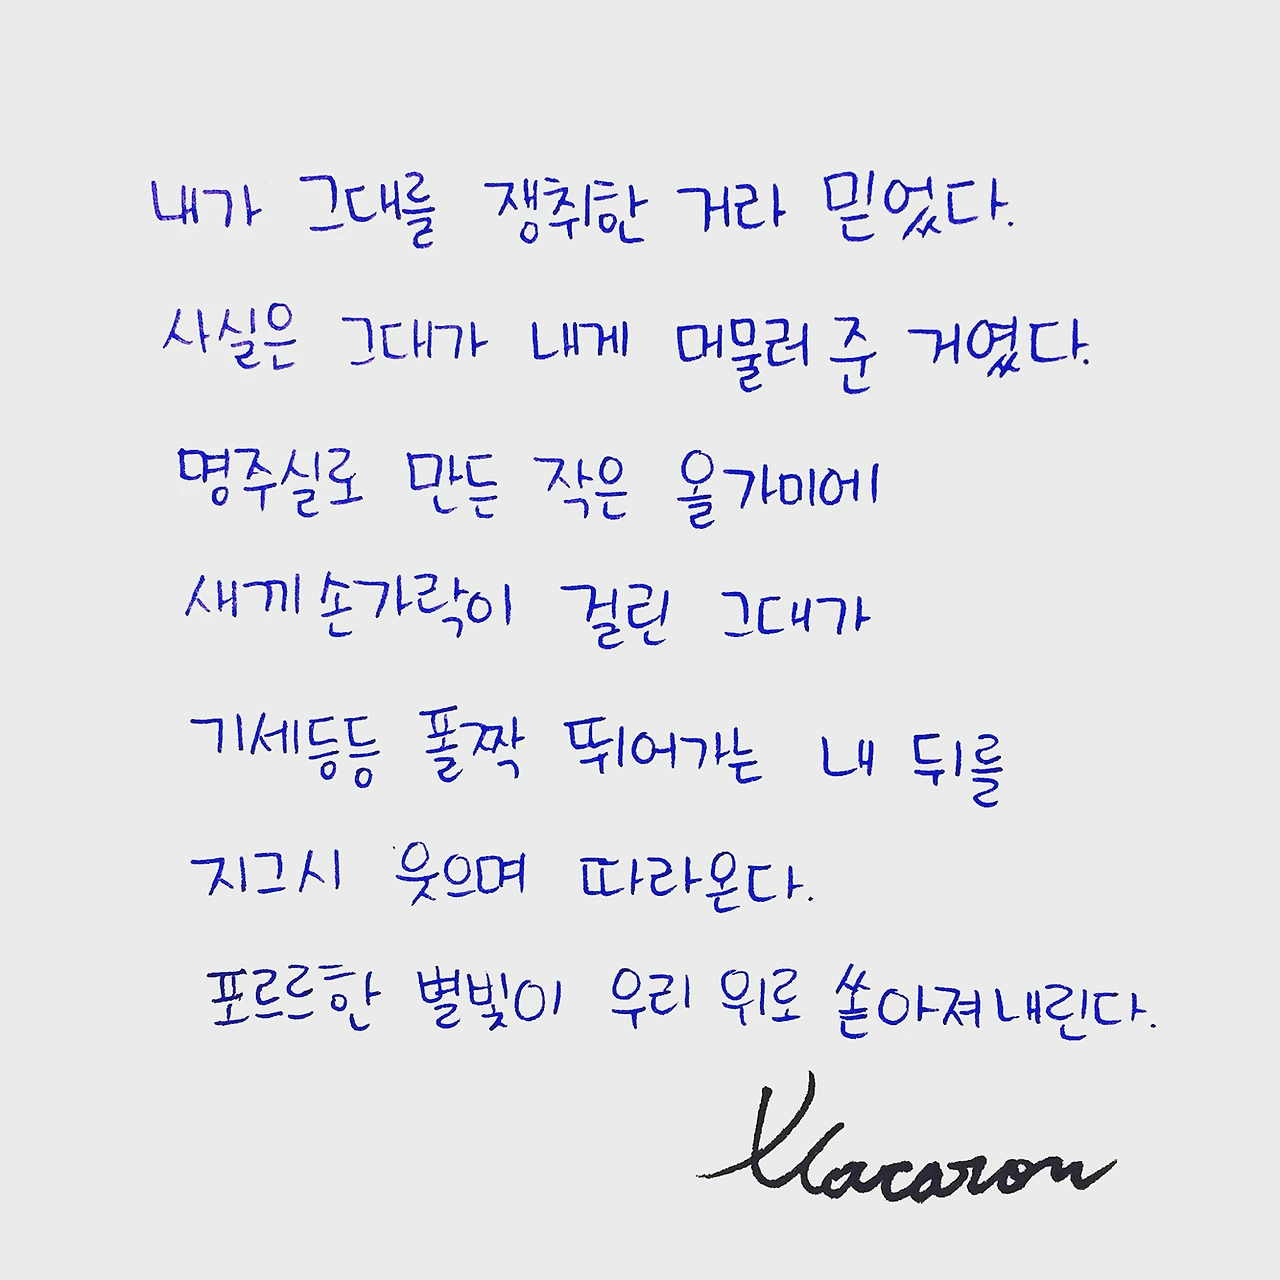 내가 그대를 쟁취한 거라 믿었다.
사실은 그대가 내게 머물러 준 거였다.
명주실로 만든 작은 올가미에
새끼손가락이 걸린 그대가
기세등등 폴짝 뛰어가는 내 뒤를
지그시 웃으며 따라온다.
포르르한 별빛이 우리 위로 쏟아져내린다.
Macaron